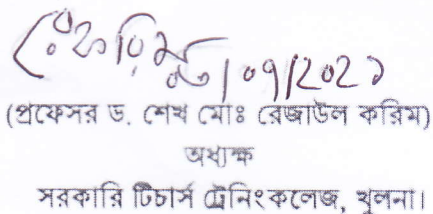 ০৭/২০২১
(প্রফেসর ড. শেখ মোঃ রেজাউল করিম)
অধ্যক্ষ
সরকারি টিচার্স ট্রেনিং কলেজ, খুলনা।